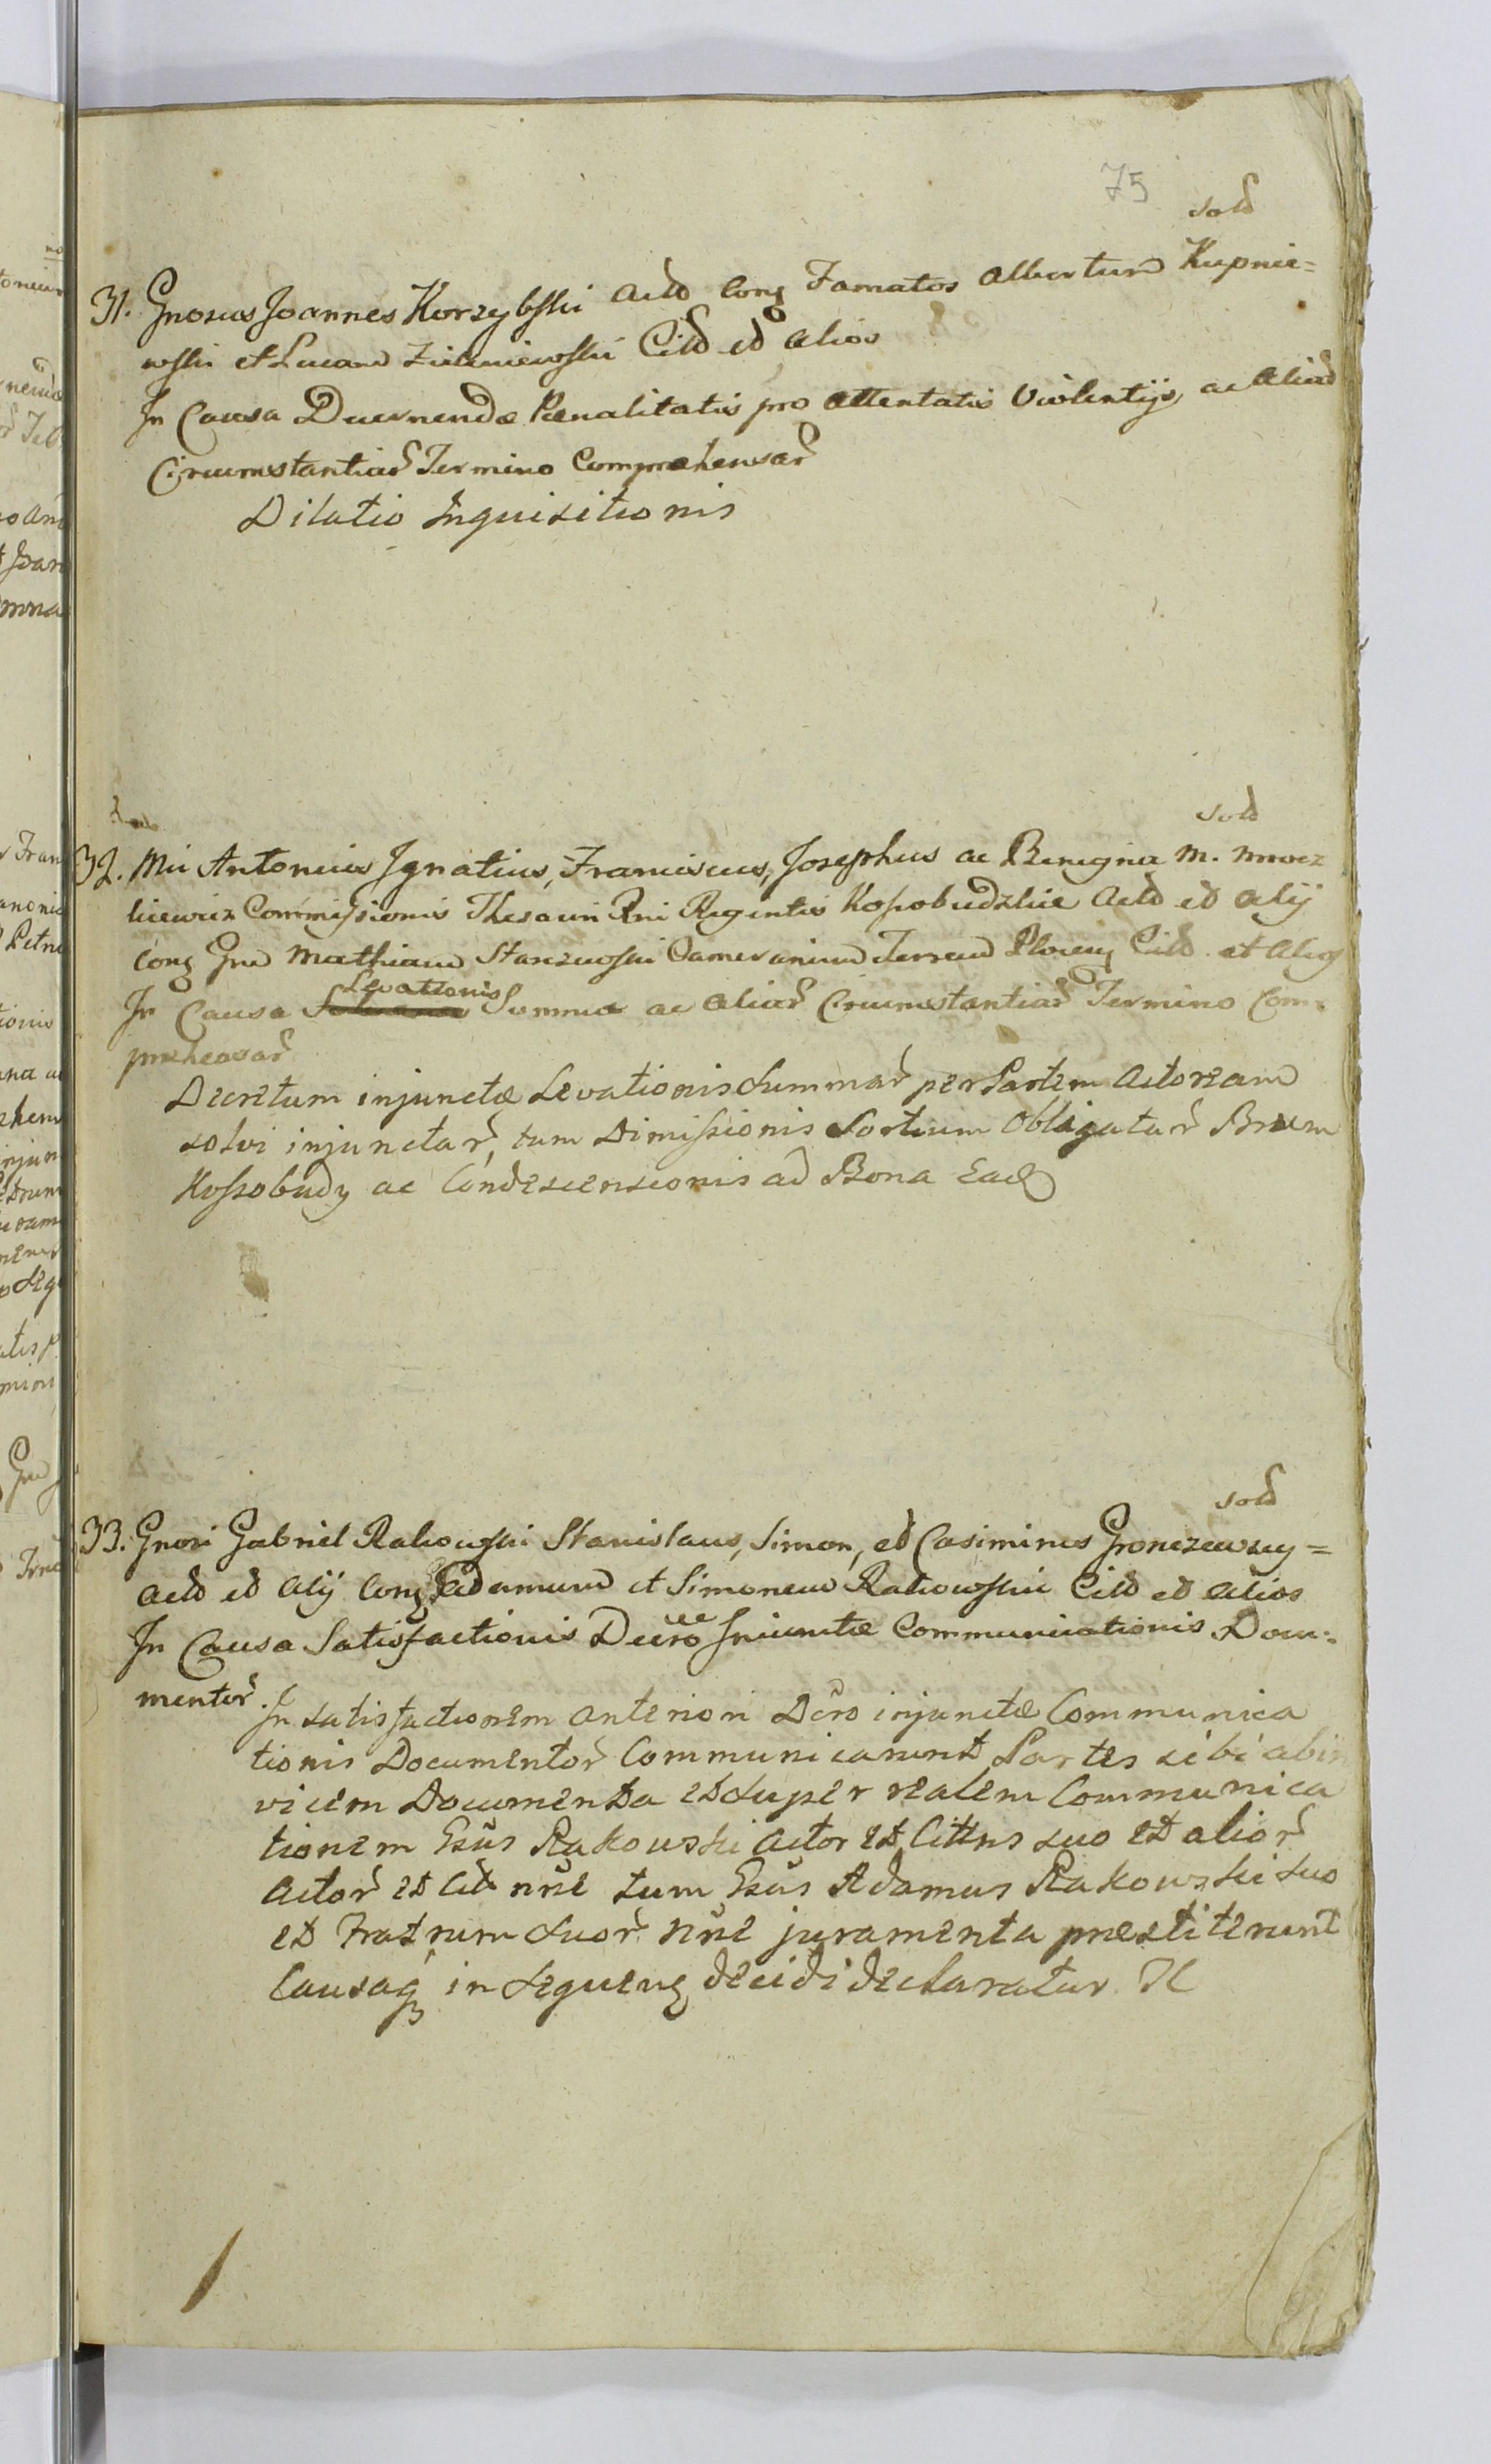 75
sold
31. Gnosus Joannes Korzybski Actd Cong Famatos Albertum Kupnie=
wski et Lucam Zieleniewski Citd ed Alios
In Causa Decernendæ Pœnalitatis pro Attentatis Violentijs ac Aliar
Circumstantiar Termino Comprehensar
Dilatio Inquisitionis
sold
32. Mii Antonius Ignatius, Franciscus, Josephus ac Benigna M.
Commissionis Thesauri Rni Regentis Kossobudzkie Actd ed Alij
Cong Gnd Mathiam Starzewski Camerarium Terrarum Plocen Citd et Alios
Levationis
In Causa Summæ ac Aliar Circumstantiar Termino Com=
prehensar
Decretum injunctæ Levationis Summar per Partem Actoream
solvi injunctar, tum Dimissionis Sortium Obligatar Bnrum
Kossobudy ac Condescensionis ad Bona Ead
sold
33. Gnosi Gabriel Rakowski Stanislaus, Simon, ed Casimirus Gronczewscy=
Actd ed Alij Cong Adamum et Simonem Rakowskie Citd ed Alios
In Causa Satisfactionis Decro Iniunctæ Communicationis Docu=
mentor.
In Satisfactionem Anteriori Dcro injunctæ Communica
tionis Documentor Communicarunt Partes sibi abin
vicem Documenta et super realem Communica
tionem Gsus Rakowski Actor et Cittus suo et alior
Actor et Cit nñe tum Gsus Adamus Rakowski suo
et Fratrum suor nñe juramenta præstiterunt
Causaq in sequenq decidi declaratur